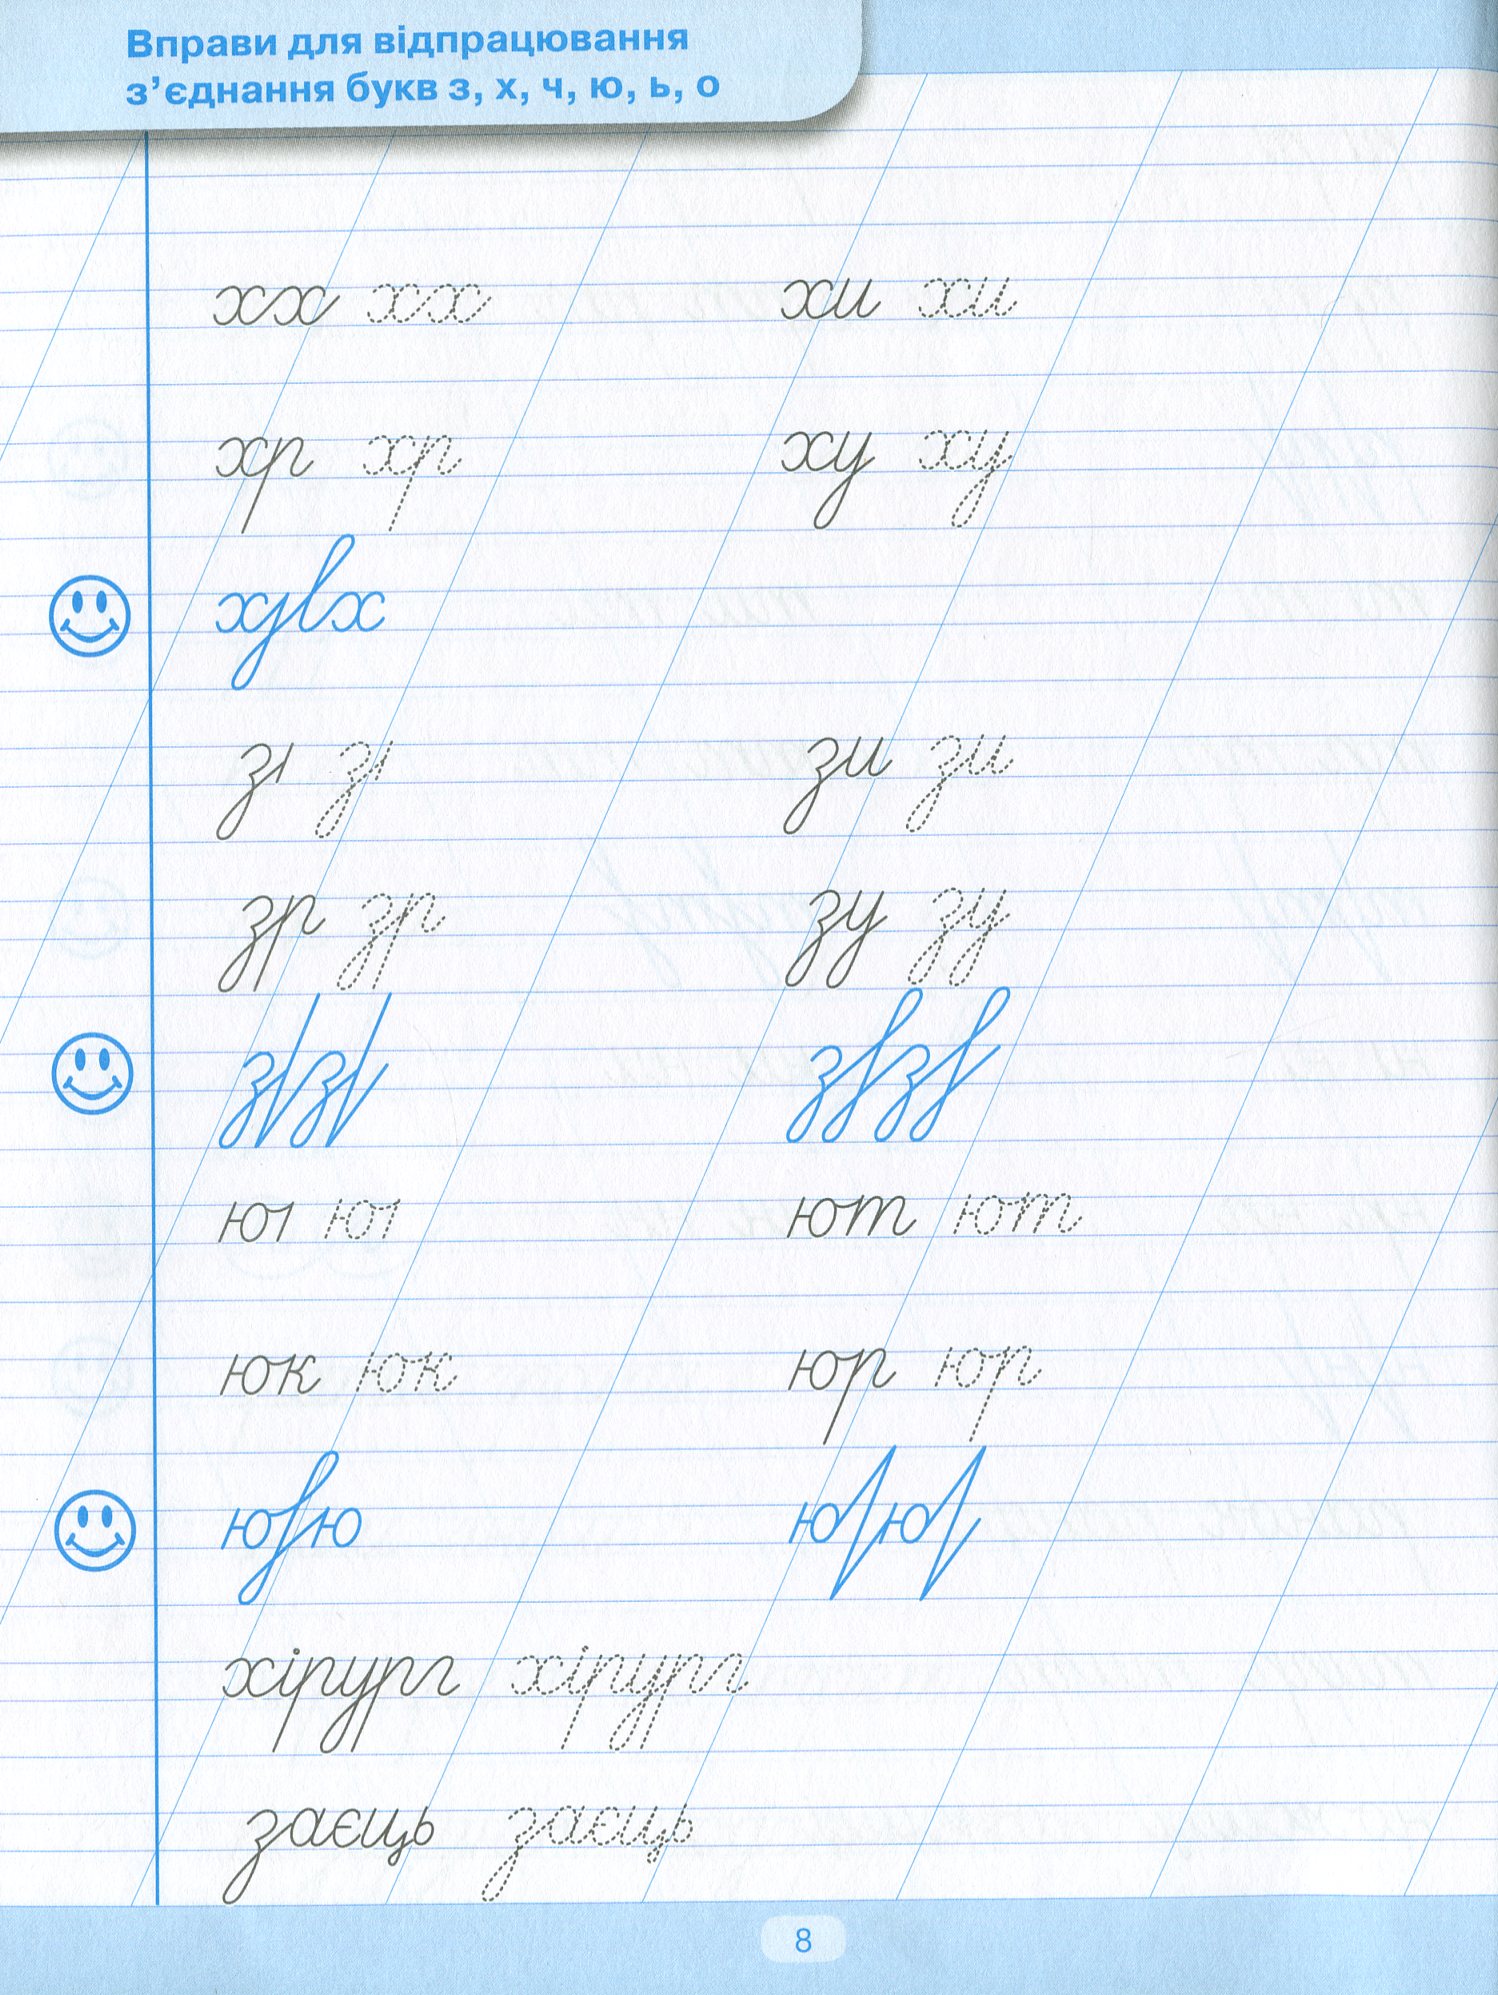 Вправи для відпрацювання
з’єднання букв з, х, ч, ю, ь, о
хх хх хи хи
хр хр ху ху
зи зи
зр зр зу зу
ют ют
юк юк юр юр
хірург хірург
заєць заєць
8